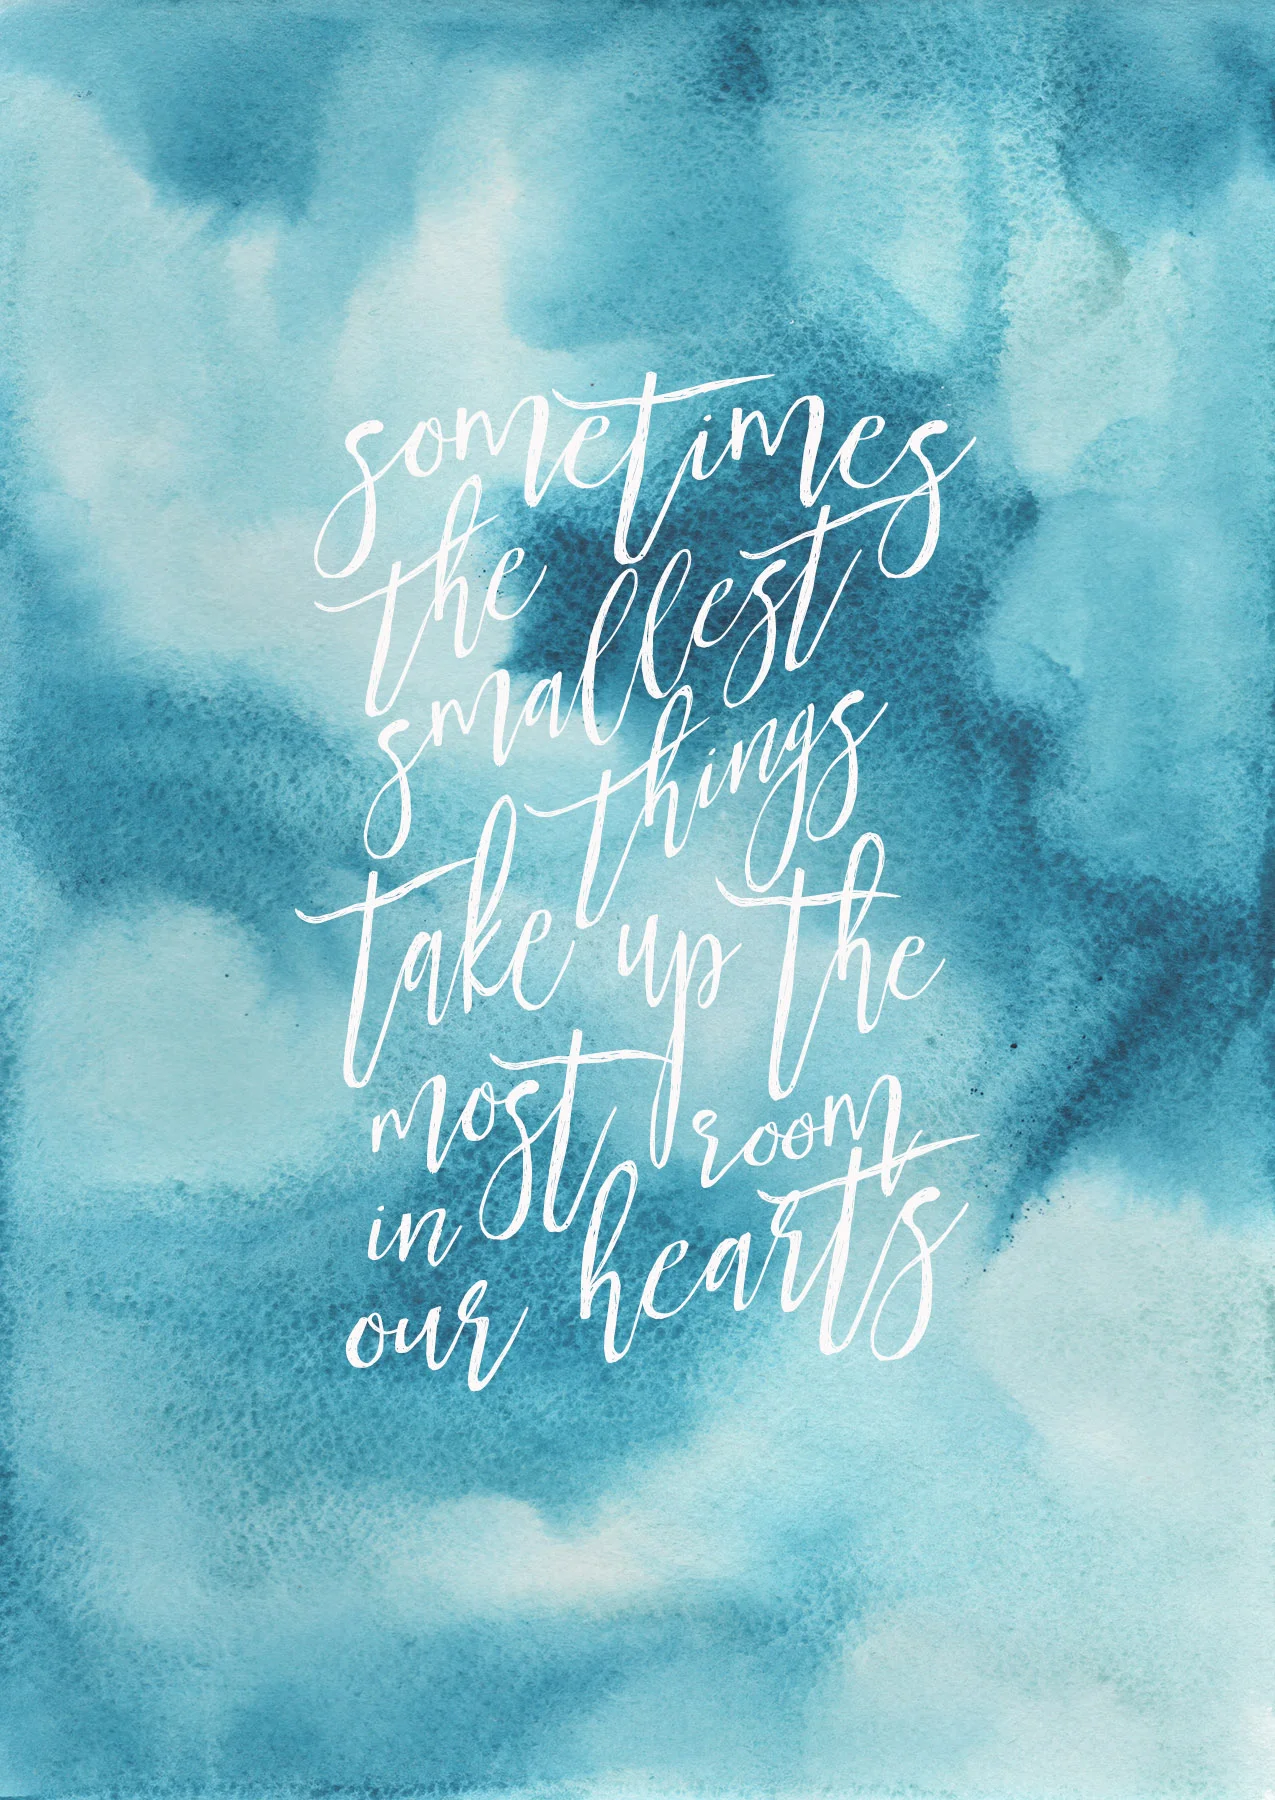 sometimes
the
smallest
things
take up the
most room
in
our hearts